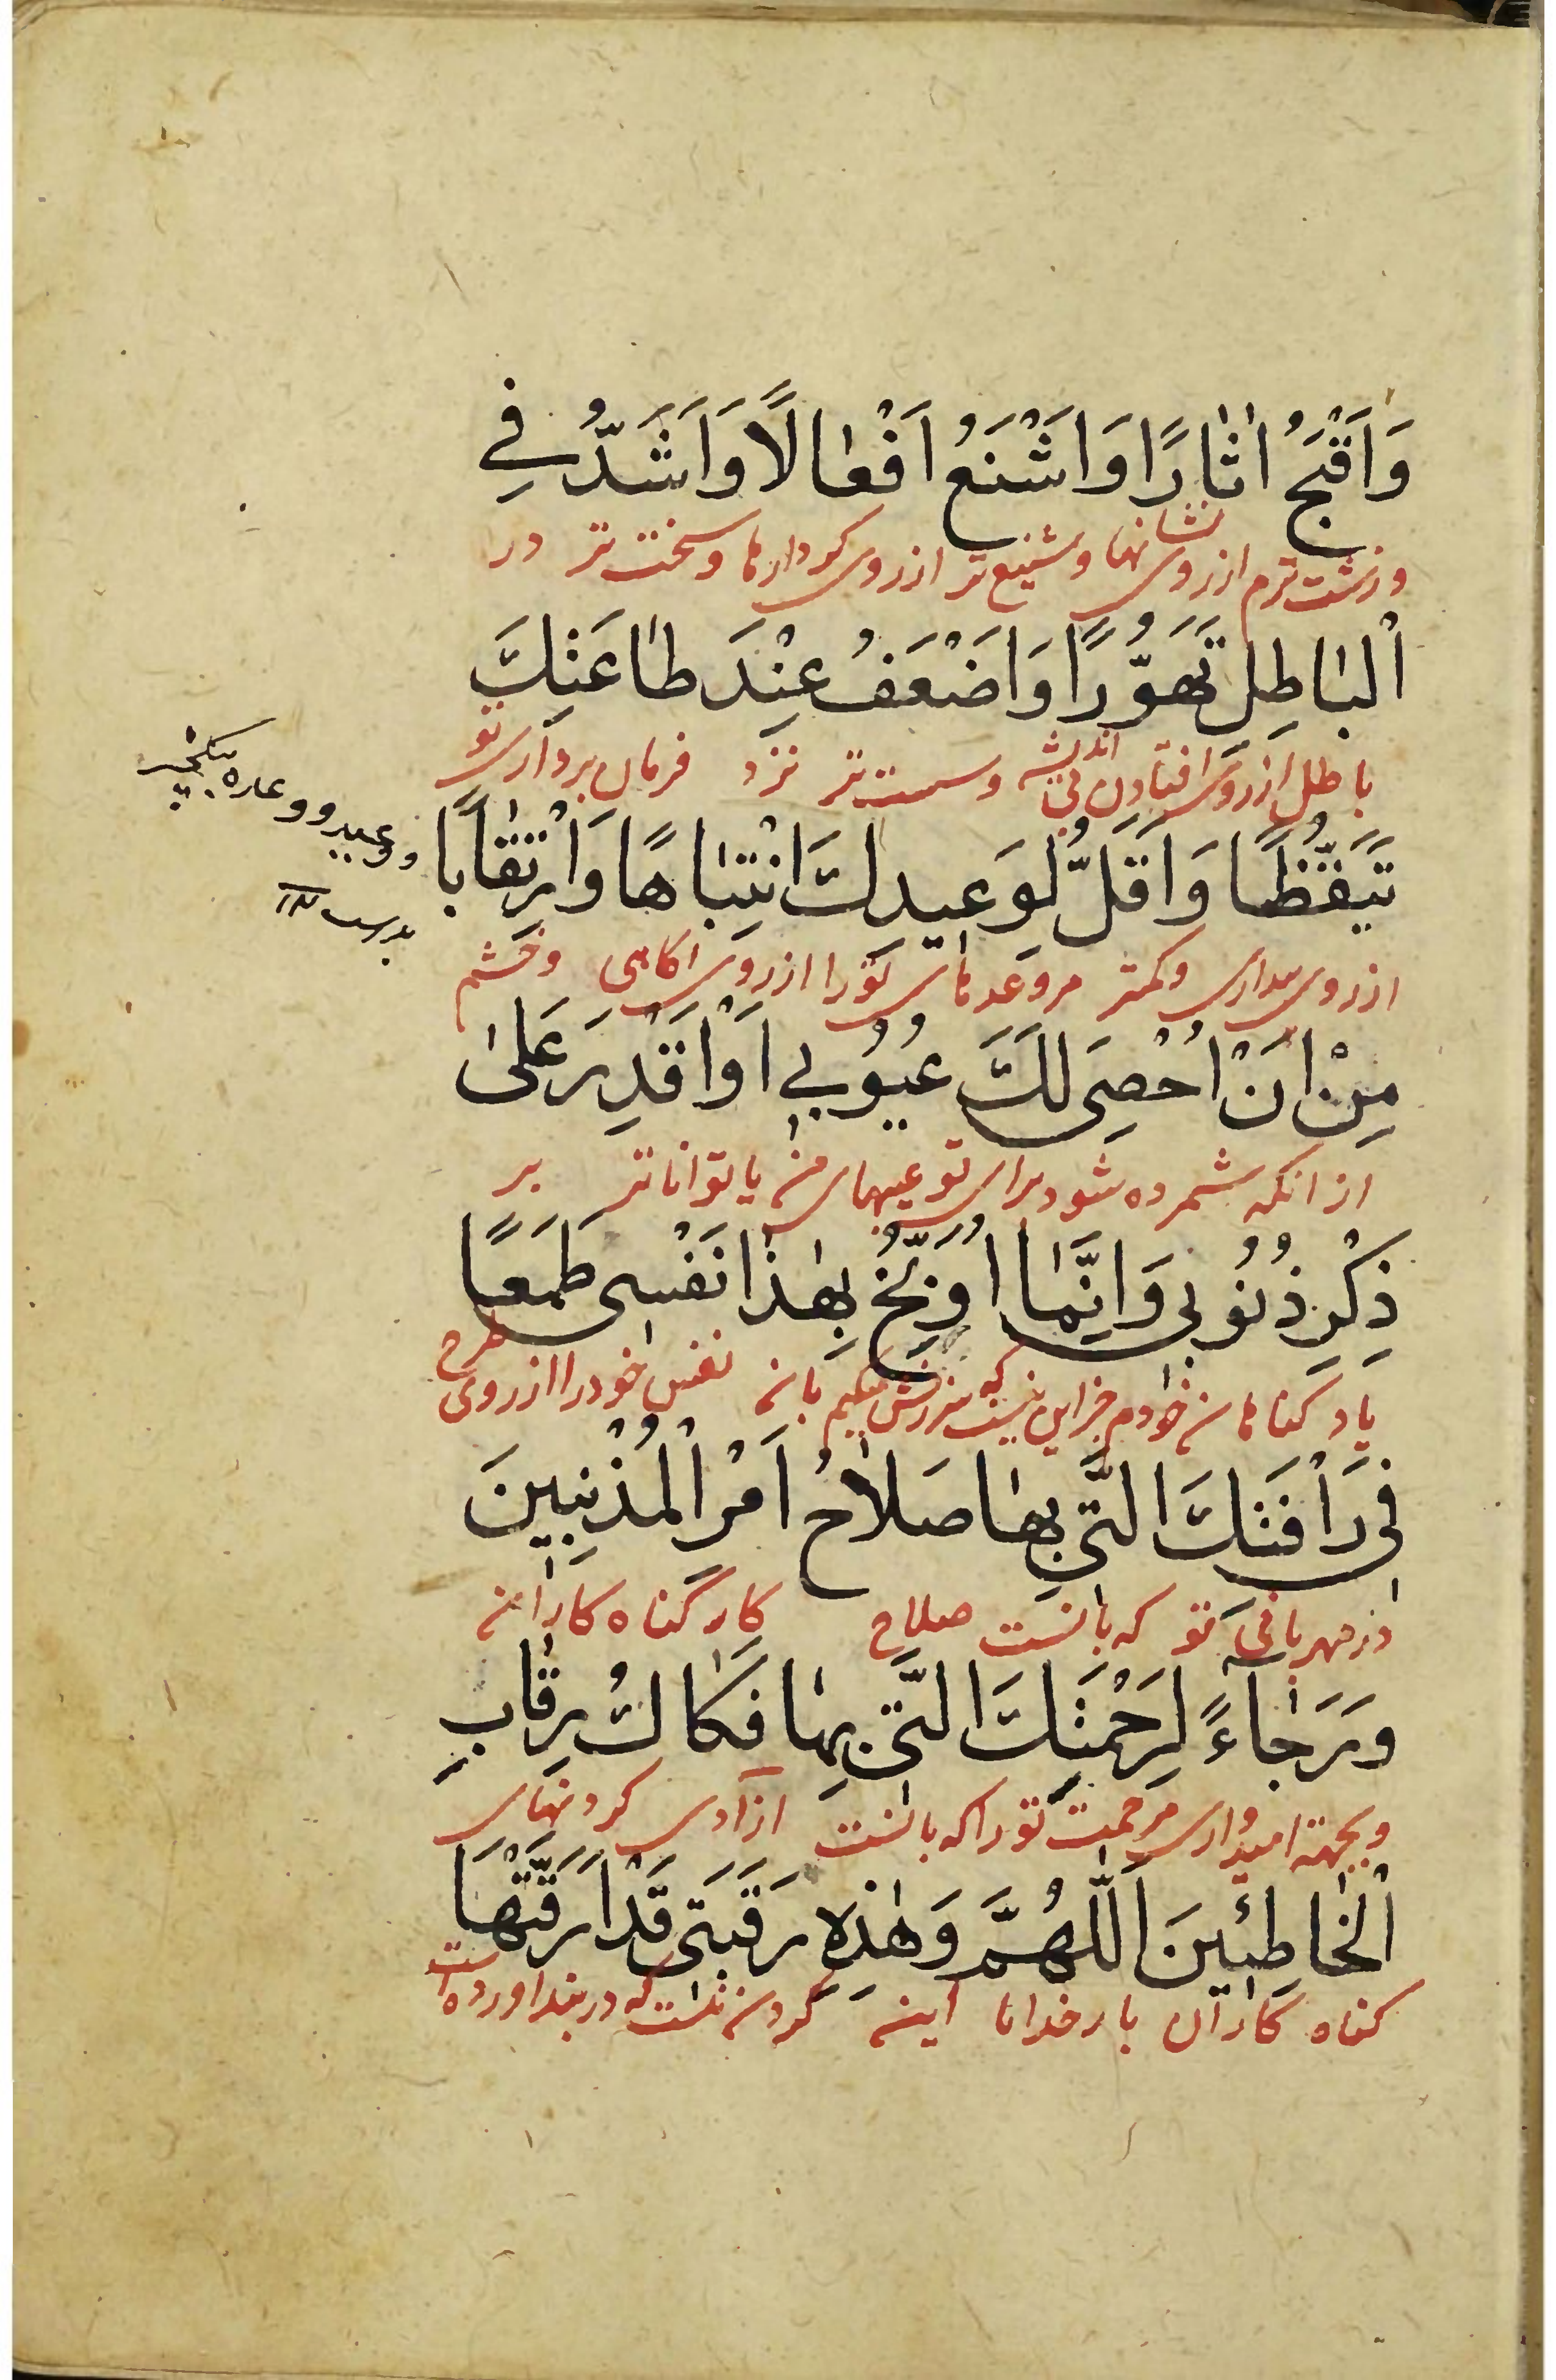 وَاَقْبَحُ اٰثٰارًا وَاَشْنَعُ اَفْعٰالًا وَاَشَدُّ فِي
وزشت ترم ازروی نشانها وشنیع تر ازروی کردارها وسخت تر در
اَلْبٰاطِلِ تَهَوُّرًا وَاَضْعَفُ عِنْدَ طٰاعَتِكَ
باطل ازروی افتادن بی اندیشه وسست تر نزد فرمان برداری تو
تَيَقُّظًا وَاَقَلُّ لِوَعيدِكَ انْتِبٰاهًا وَارْتِقٰابًا
ازروی بیداری وکمتر مروعدهای تورا ازروی اکاهی وخشم
مِنْ اَنْ اُحْصِىَ لَكَ عُيُوبي اَوْ اَقْدِرَ عَلىٰ
از انکه شمرده شود برای تو عیبهای من یا توانا تر بر
ذِكْرِ ذُنُوبى وَاِنَّمٰا اُوَبِّخُ بِهٰذٰا نَفْسى طَمَعًا
یاد کناهان خودم جز این نیست که سرزنش میکنم بانه نفس خودرا ازروی طرح
فى رَأْفَتِكَ الَّتى بِهٰا صَلاٰحُ اَمْرِ الْمُذْنِبينَ
در مهربانی تو که بانست صلاح کار گناه کارانه
وَرَجٰاءً لِرَحْمَتِكَ الَّتى بِهٰا فَكٰاكُ رِقٰابِ
وبجهة امیدواری مرحمت تورا که بانست ازادی کردنهای
الْخٰاطِئينَ اَللّٰهُمَّ وَهٰذِهِ رَقَبَتى قَدْ اَرَقَّتْهَا
کناه کاران بارخدایا اینه کردن منست که دربند اورده است
وعید و وعاره